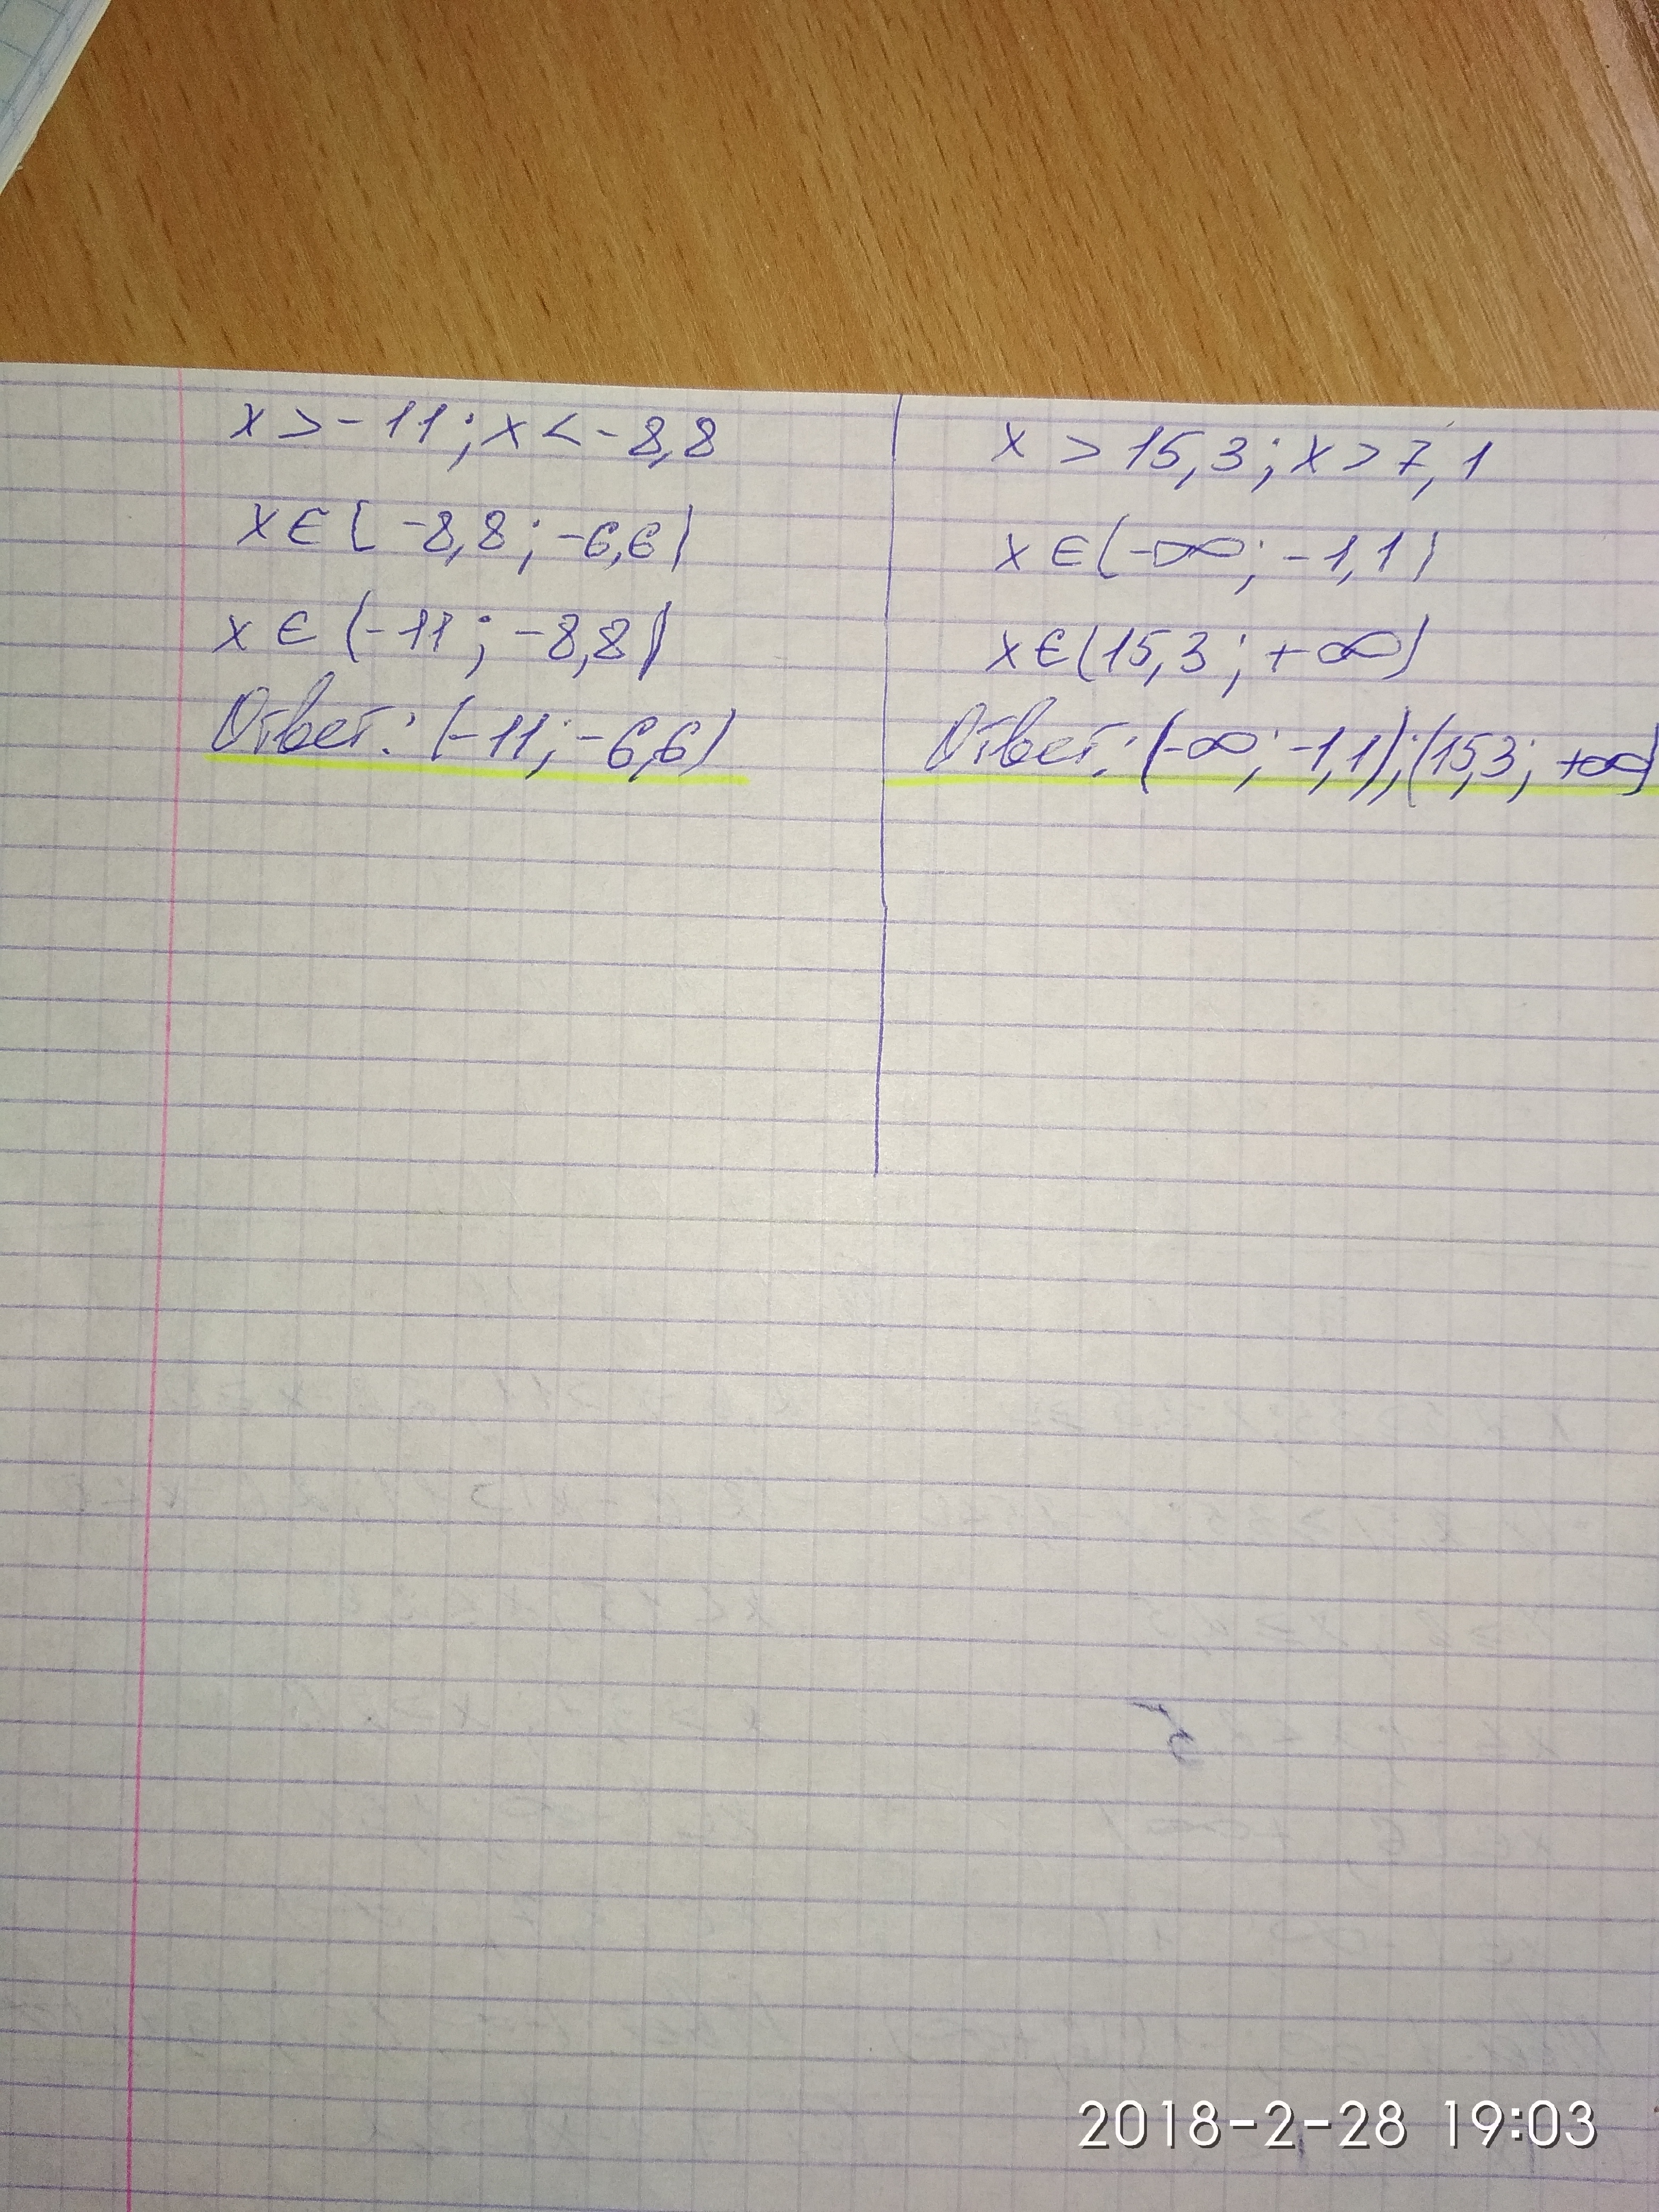 x > -11; x < -8,8
x ∈ [-8,8; -6,6)
x ∈ (-11; -8,8)
Ответ: (-11; -6,6)
x > 15,3; x > 7,1
x ∈ (-∞; -1,1)
x ∈ (15,3; +∞)
Ответ: (-∞; -1,1); (15,3; +∞)
2018-2-28 19:03